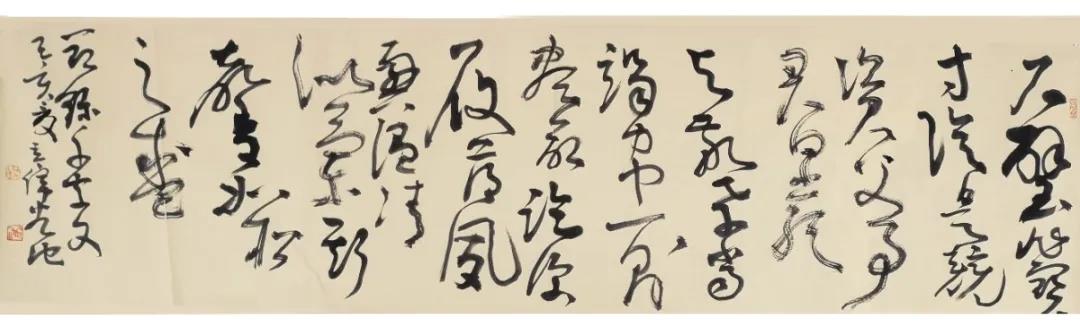 尺璧非寶
寸陰是競
資父事
君曰嚴
與敬孝當
竭力忠則
盡命臨深
履薄夙
興溫清
似蘭斯
馨如松
之盛
節錄千字文
己亥夏